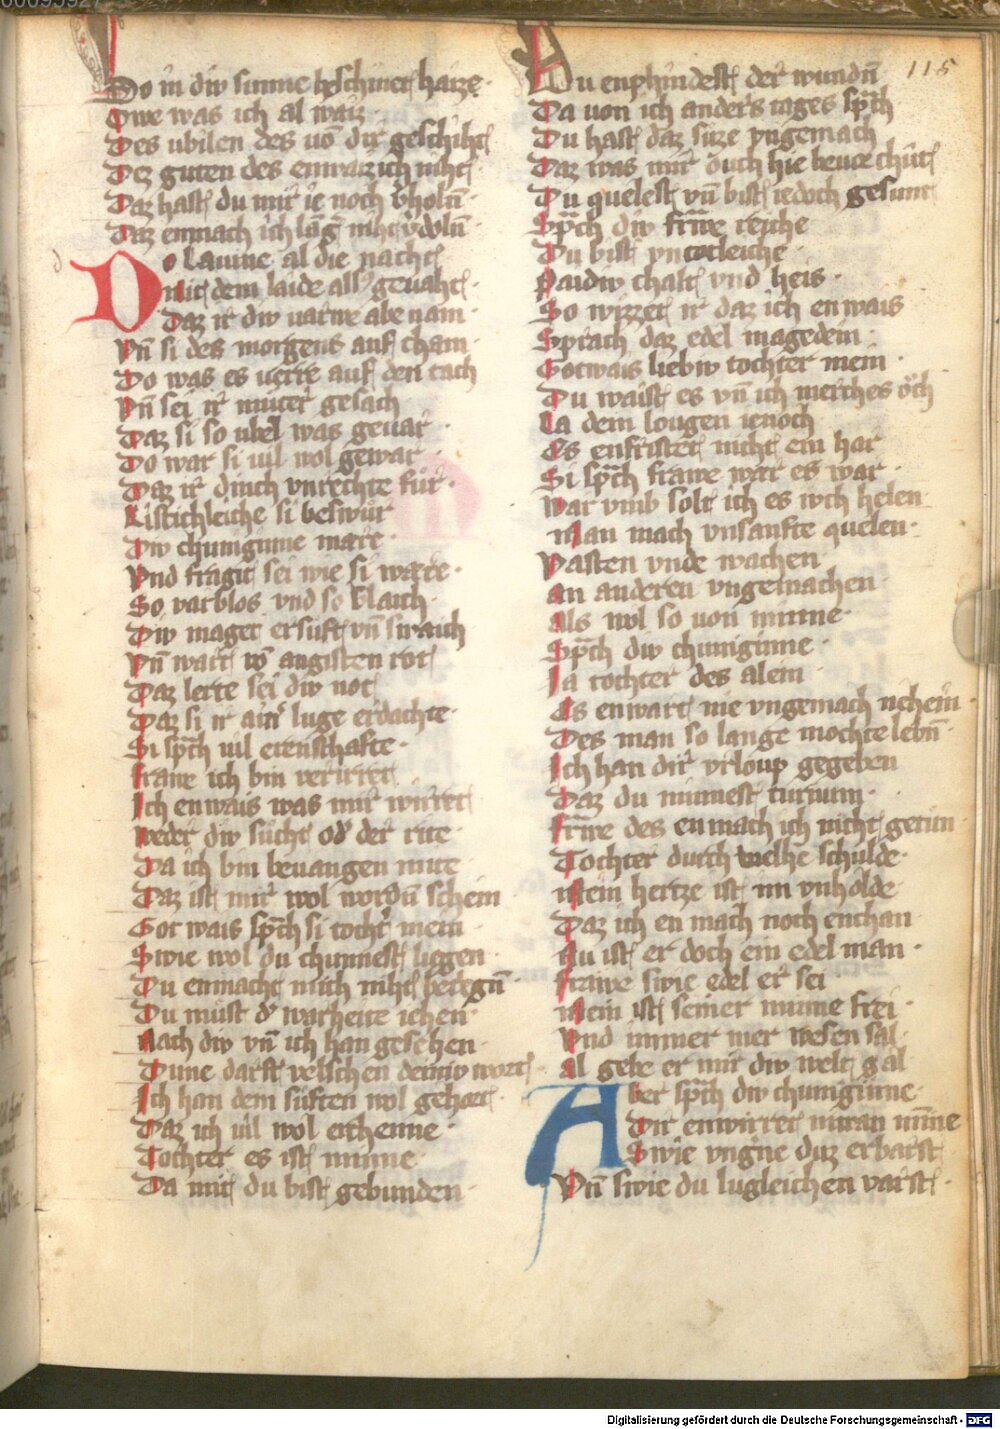 115
Do in diw sunne beschinet haize
Owe was ich al waiz
Des ubilen des vō dir geschiht
Dez guten des enwaiz ich niht
Daz hast du mir ie noch v̓holn̄
Daz enmach ich lāg̓ niht v̓doln̄
Do Lauine al die nacht
Mit dem laide alls̓ geuaht
Daz ir diw uarwe abe nam
Vn̄ si des morgens auf cham
Do was es uerre auf den tach
Vn̄ sei ir muter gesach
Daz si so ubel was geuar
Do wart si uil wol gewar
Daz ir dinch vnrechte fur
Listichleiche si beswur
Diw chuniginne mare
Vnd fragit sei wie si ware
So varblos vnd so blaich
Diw maget ersuft vn̄ swaich
Vn̄ wart vō angisten rot
Daz lerte sei diw not
Daz si ir ain̓ luge erdachte
Si sp̄ch uil ellenschafte
frawe ich bin verirret
Ich enwais was mir wirret
weder diw sucht od̓ der rite
Da ich bin beuangen mite
Daz ist mir wol wordn̄ schein
Got wais sp̄ch si tocht̓ mein
Swie wol du chunnest liegen
Du enmacht mich niht betrign̄
Du must d̓ warheite iehen
Nach diw vn̄ ich han gesehen
Dune darft velschen deiniw wort
Ich han dem suften wol gehort
Daz ich uil wol erchenne
Tochter es ist minne
Da mit du bist gebunden
Du enphindest der wundn̄
Da uon ich anders tages sp̄ch
Du hast daz suze vngemach
Daz was mir ouch hie beuor chūt
Du quelest vn̄ bist iedoch gesunt
Sp̄ch diw frawe reiche
Du bist vntotleiche
Paidiw chalt vnd heis
So wizzet ir daz ich en wais
Sprach daz edel magedein
Gotwais liebiw tochter mein
Du waist es vn̄ ich merches och
La dem lougen ienoch
Es enfristet nicht ein har
Si sp̄ch frawe war es war
War vmb solt ich es iwch helen
Man mach vnsanfte quelen
Vasten vnde wachen
An anderen vngemachen
Als wol so uon minne
Sp̄ch diw chuniginne
Ia tochter des alein
Es enwart nie vngemach nichein
Des man so lange mochte lebn̄
Ich han dir vrloup gegeben
Daz du minnest turnum
frawe des enmach ich nicht getun
Tochter durch welhe schulde
Mein hertze ist im vnholde
Daz ich en mach noch enchan
Nu ist er doch ein edel man
frawe swie edel er sei
Mein ist seiner minne frei
Vnd immer mer wesen sal
Al gebe er mir diw welt gal
Aber sp̄ch diw chuniginne
Dir enwirret niwan mīne
Swie vngne duz erbarst
Vn̄ swie du lugleichen varst
Digitalisierung gefördert durch die Deutsche Forschungsgemeinschaft - DFG